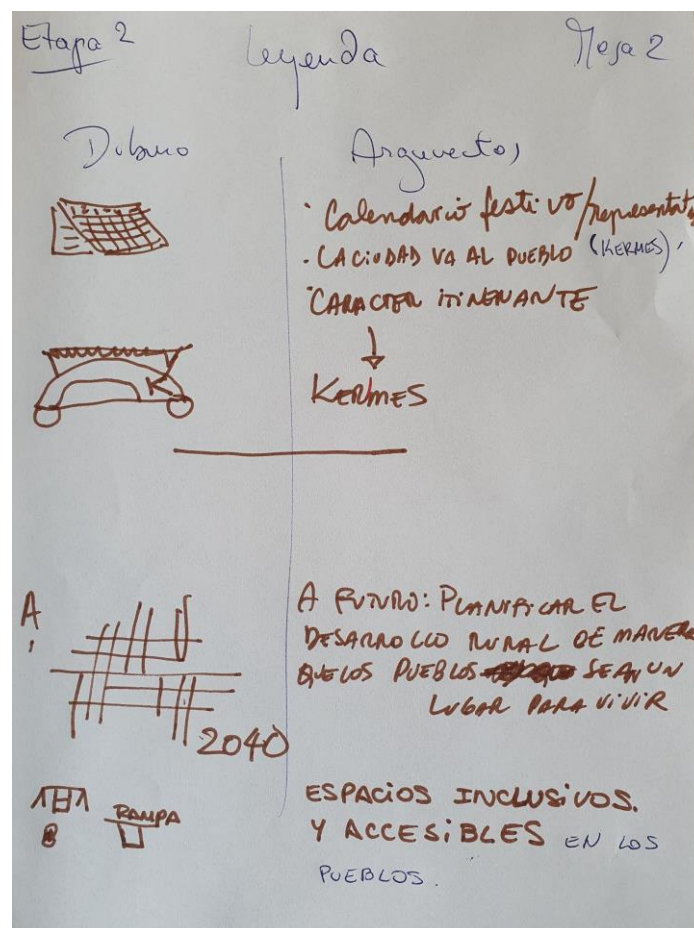 Etapa 2
Leyenda
Mesa 2
Dibujo
Argumentos
· Calendario festivo/representat
· LA CIUDAD VA AL PUEBLO (KERMES).
· CARACTER ITINERANTE
KERMES
K
A
A FUTURO: PLANIFICAR EL
DESARROLLO RURAL DE MANERA
QUE LOS PUEBLOS SEAN UN
LUGAR PARA VIVIR
2040
RAMPA
ESPACIOS INCLUSIVOS.
Y ACCESIBLES EN LOS
PUEBLOS.